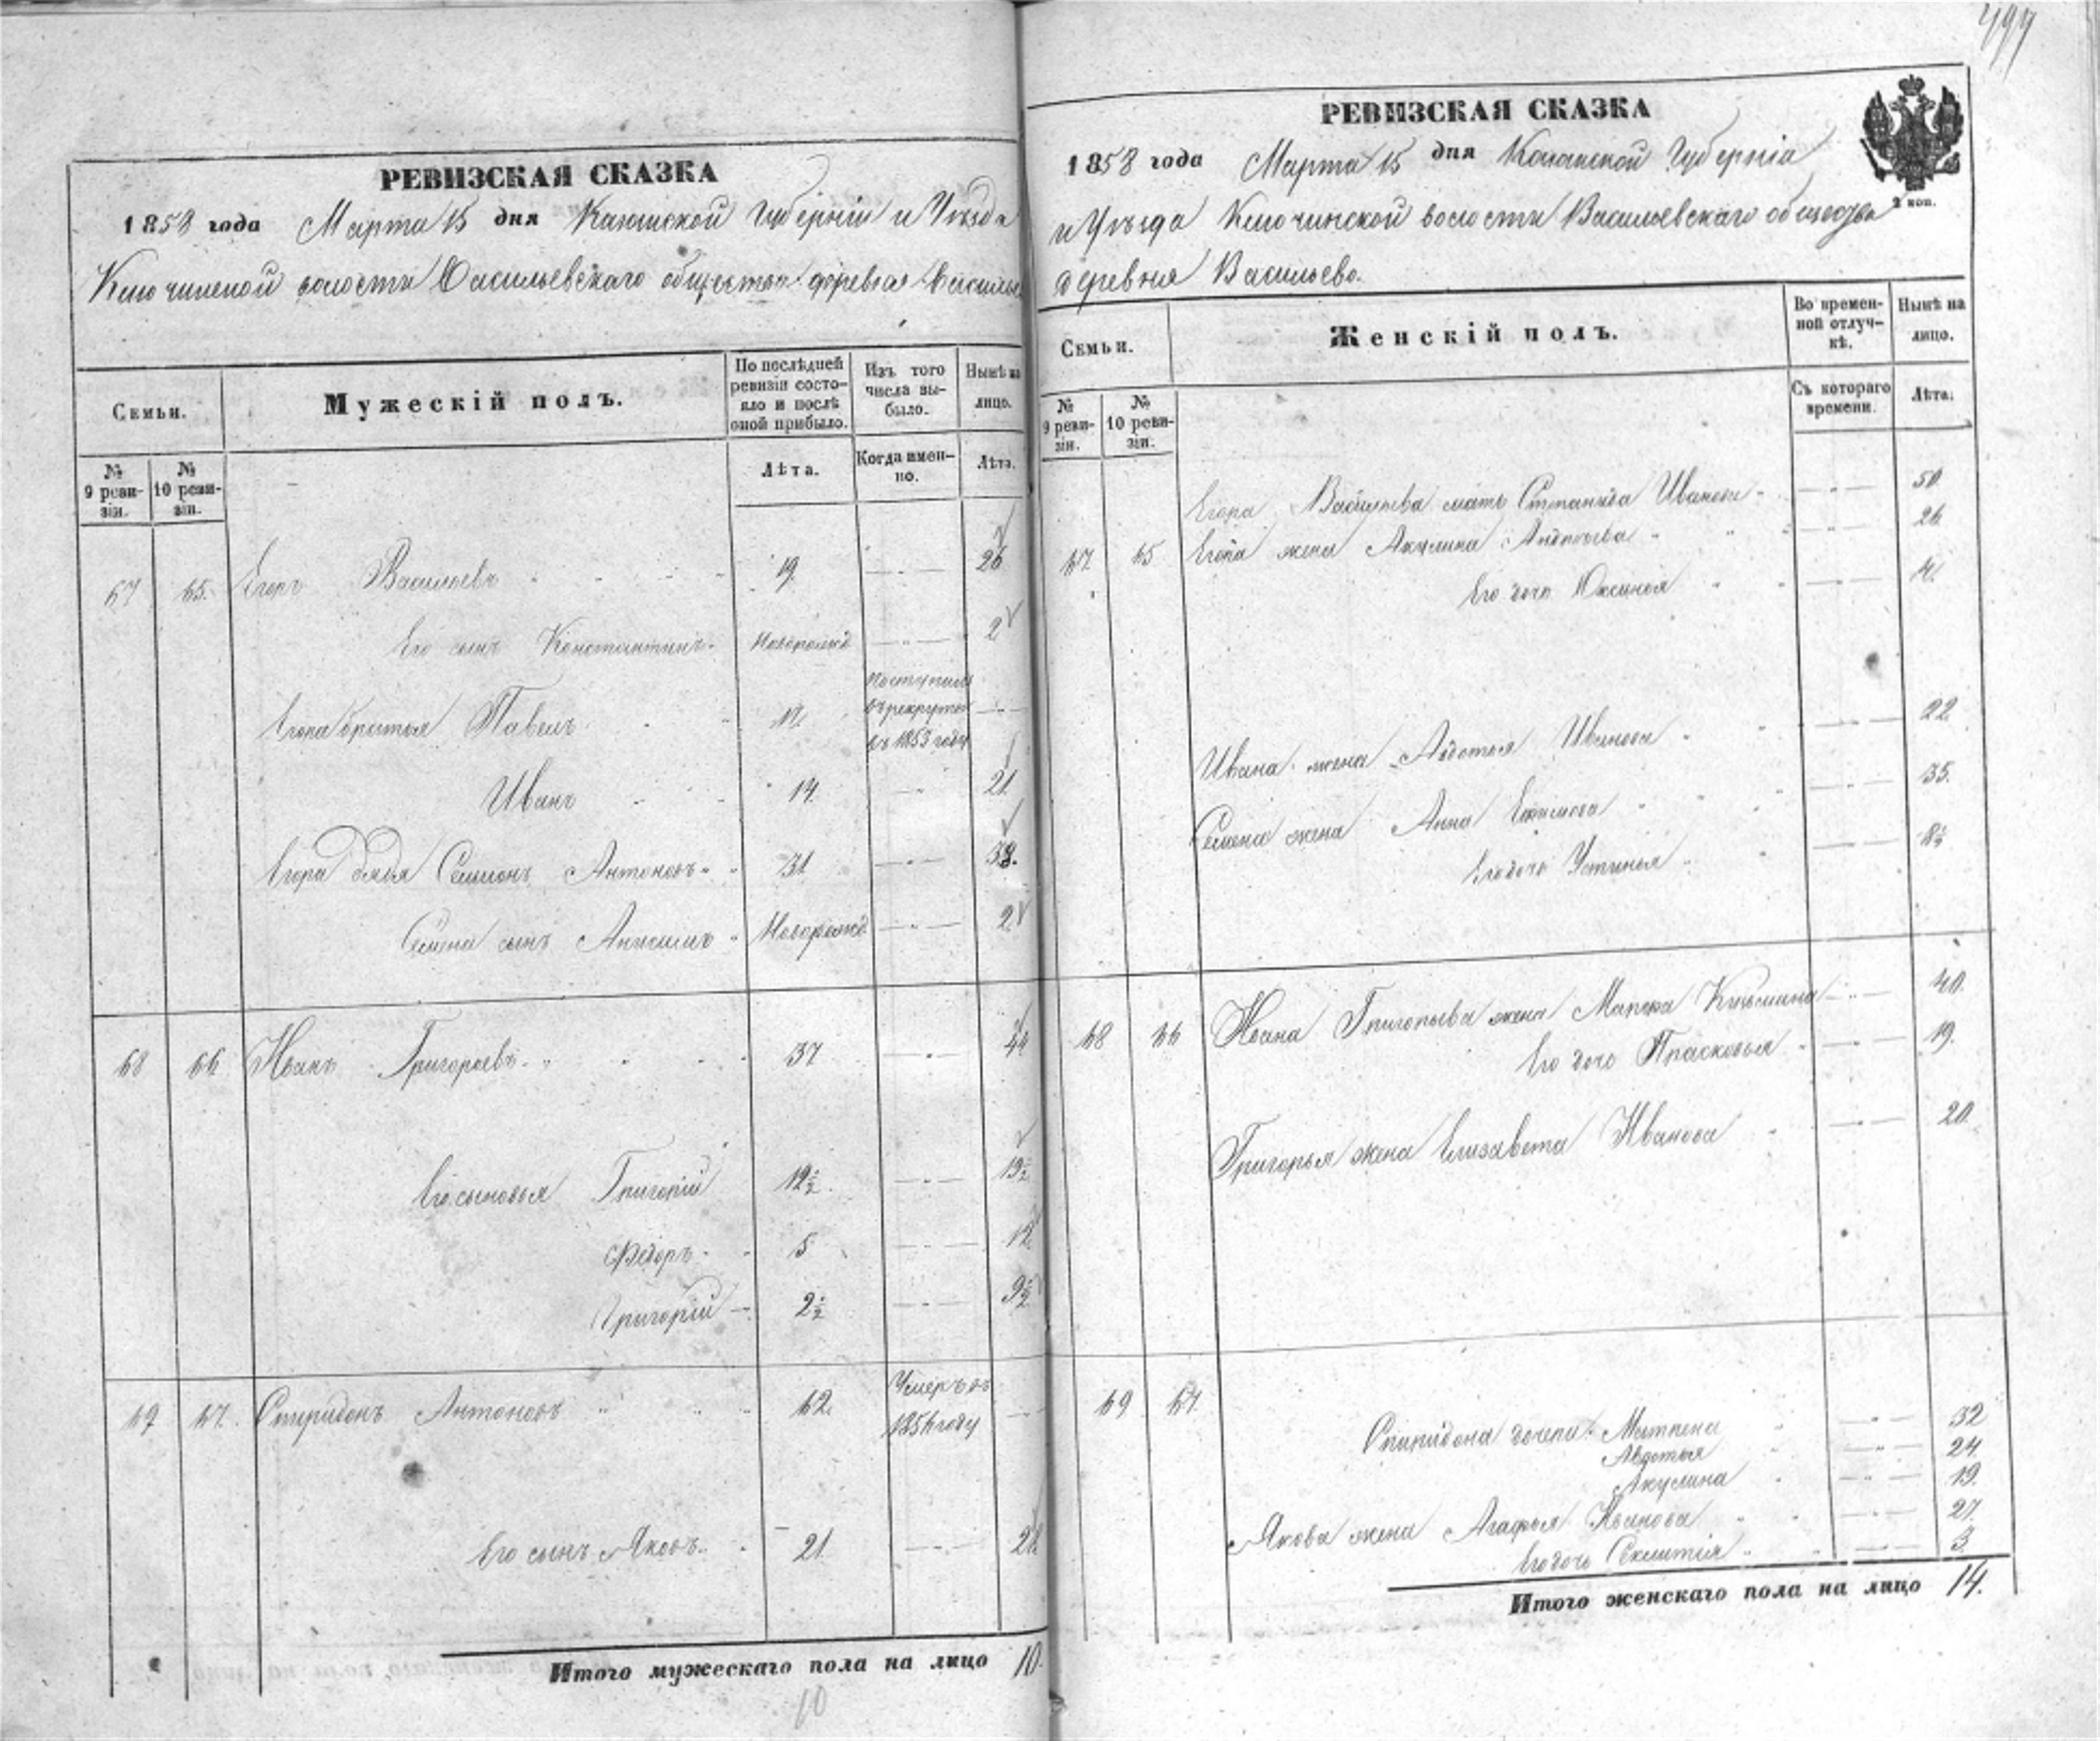 499
РЕВИЗСКАЯ СКАЗКА
1858 года Марта 15 дня Казанской Губерніи и Уѣзда
Ключинской волости Васильевскаго общества деревня
Семьи.
Мужескій полъ.
По послѣдней ревизіи состояло и послѣ оной прибыло.
Изъ того числа выбыло.
Нынѣ на лицо.
№ 9 ревизіи.
№ 10 ревизіи.
Лѣта.
Когда именно.
Лѣта.
67 65. Егоръ Васильевъ 19. 26
Его сынъ Константинъ Новорожд 2
Егора братья Павелъ поступилъ въ рекруты въ 1853 году
Иванъ 14. 21.
Егора дядя Семионъ Антоновъ 31 38.
Семена сынъ Анисимъ Новорожд 2
68 66 Иванъ Григорьевъ 37 44
Его сыновья Григорій 12½ 19½
Федоръ 5 12
Григорій 2½ 9½
69 67. Спиридонъ Антоновъ 62. Умеръ въ году
Его сынъ Яковъ 21 28
Итого мужескаго пола на лицо 10.
10
РЕВИЗСКАЯ СКАЗКА
1858 года Марта 15 дня Казанской Губерніи
и Уѣзда Ключинской волости Васильевскаго общества
деревня Васильево.
2 коп.
Семьи.
Женскій полъ.
Во временной отлучкѣ.
Нынѣ на лицо.
№ 9 ревизіи.
№ 10 ревизіи.
Съ котораго времени.
Лѣта.
Егора Васильева мать Степанида Иванова 50
67 65 Егора жена Акулина 26
Его дочь 4.
Ивана жена Авдотья Иванова 22
Семена жена Анна Ефимова 35.
Его дочь Устинья 8½
68 66 Ивана Григорьева жена Марья Кузьмина 40.
Его дочь Прасковья 19.
Григорья жена Елизавета Иванова 20.
69 67
Спиридона дочери Матрена 32
Авдотья 24
Акулина 19.
Якова жена Агафья Иванова 27
Его дочь 3
Итого женскаго пола на лицо 14.